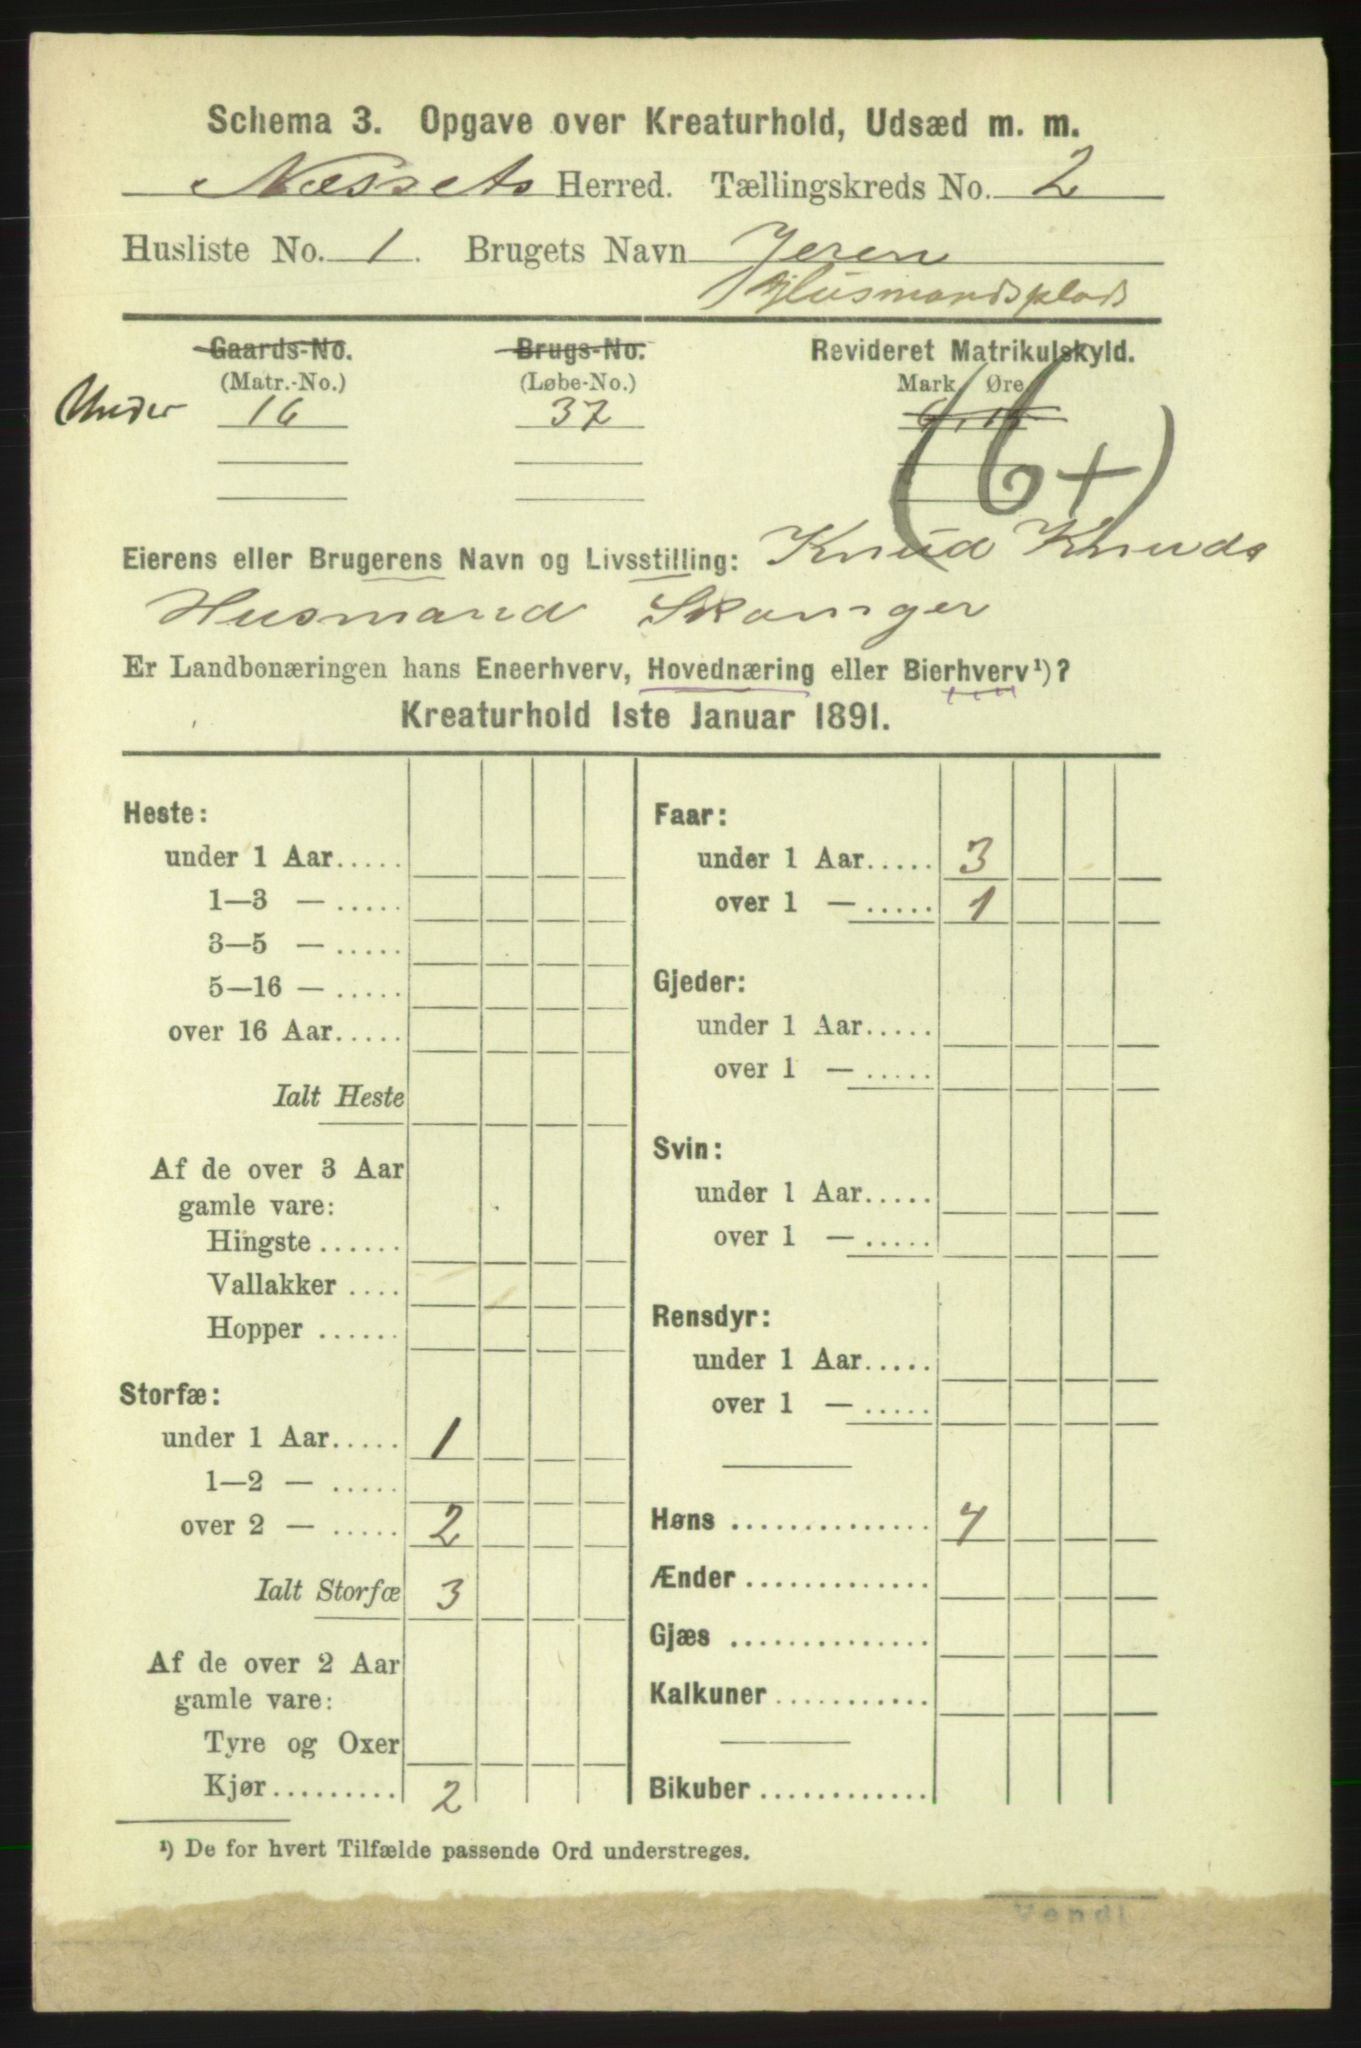 Schema 3. Opgave over Kreaturhold, Udsæd m. m.
Næssets Herred. Tællingskreds No. 2
Husliste No. 1. Brugets Navn Jeren
Husmandsplads
Gaards-No. Brugs-No. Revideret Matrikulskyld.
(Matr.-No.) (Løbe-No.) Mark Øre
Under 16 37
(6+)
Eierens eller Brugerens Navn og Livsstilling: Knud Knuds
Husmand
Er Landbonæringen hans Eneerhverv, Hovednæring eller Bierhverv¹)?
Kreaturhold 1ste Januar 1891.
Heste:
under 1 Aar.....
1—3 — .....
3—5 — .....
5—16 — .....
over 16 Aar.....
Ialt Heste
Af de over 3 Aar
gamle vare:
Hingste ......
Vallakker ....
Hopper ......
Storfæ:
under 1 Aar..... 1
1—2 — .....
over 2 — ..... 2
Ialt Storfæ 3
Af de over 2 Aar
gamle vare:
Tyre og Oxer
Kjør......... 2
Faar:
under 1 Aar..... 3
over 1 — ..... 1
Gjeder:
under 1 Aar.....
over 1 — .....
Svin:
under 1 Aar.....
over 1 — .....
Rensdyr:
under 1 Aar.....
over 1 — .....
Høns ..............
Ænder .............
Gjæs ..............
Kalkuner ...........
Bikuber ............
¹) De for hvert Tilfælde passende Ord understreges.
Vend!